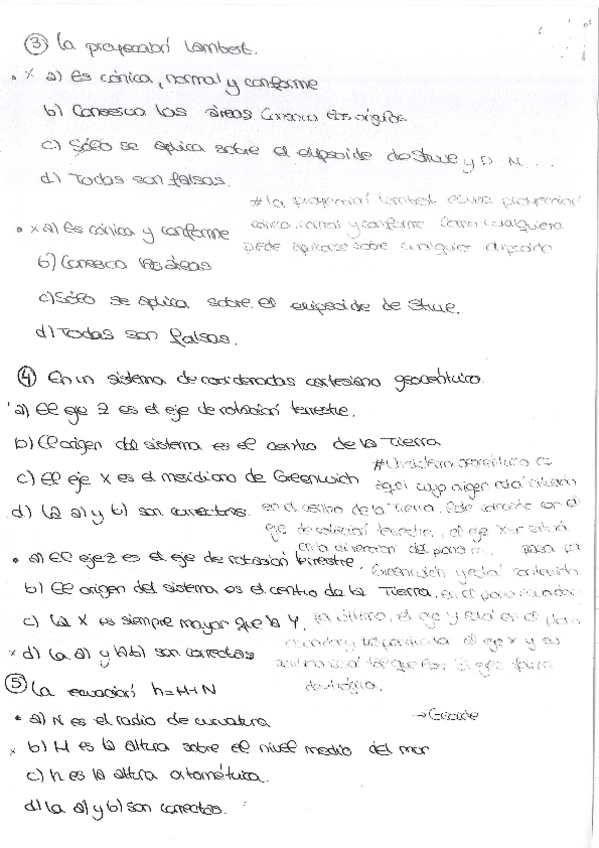 ③ La proyección Lambert.
• x a) Es cónica, normal y conforme
b) Conserva las áreas
c) Sólo se aplica sobre el elipsoide de Struve y
d) Todas son falsas.
# La proyección Lambert es una proyección
cónica, normal y conforme. Como cualquiera
puede aplicarse sobre cualquier elipsoide
• x a) Es cónica y conforme
b) Conserva las áreas
c) Sólo se aplica sobre el elipsoide de Struve.
d) Todas son falsas.
④ En un sistema de coordenadas cartesiano geocéntrico.
a) El eje Z es el eje de rotación terrestre.
b) El origen del sistema es el centro de la Tierra
c) El eje X es el meridiano de Greenwich
d) La a) y b) son correctas.
# Un sistema geocéntrico es
aquel cuyo origen está situado
en el centro de la Tierra. Este con el
eje de rotación terrestre, el eje X se sitúa
en la dirección del
Greenwich y está contenido
en el plano ecuador
• a) El eje Z es el eje de rotación terrestre.
b) El origen del sistema es el centro de la Tierra.
c) La X es siempre mayor que la Y.
x d) La a) y la b) son correctas
por último, el eje Y está en el plano
ecuador y es perpendicular al eje X y su
dextrógira.
⑤ La ecuación h=H+N
• a) N es el radio de curvatura
→ Geoide
x b) H es la altura sobre el nivel medio del mar
c) h es la altura ortométrica.
d) La a) y b) son correctas.